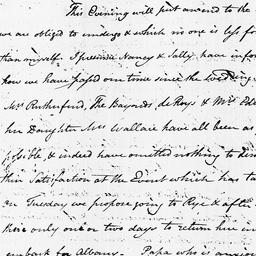 This Evening will put an end to the
we are obliged to undergo & which no one is less fo
than myself. I presume Nancy & Sally have infor
how we have passed our time since the wedding
Mrs Rutherfurd, The Bayards, deRoys & Mrs
her Daughter Mrs Wallace have all been as
possible, & indeed have omitted nothing to
their Satisfaction at the Event which has ta
on Tuesday we propose going to Rye & after
there only one or two days to return here in
embark for Albany. Papa who is anxious